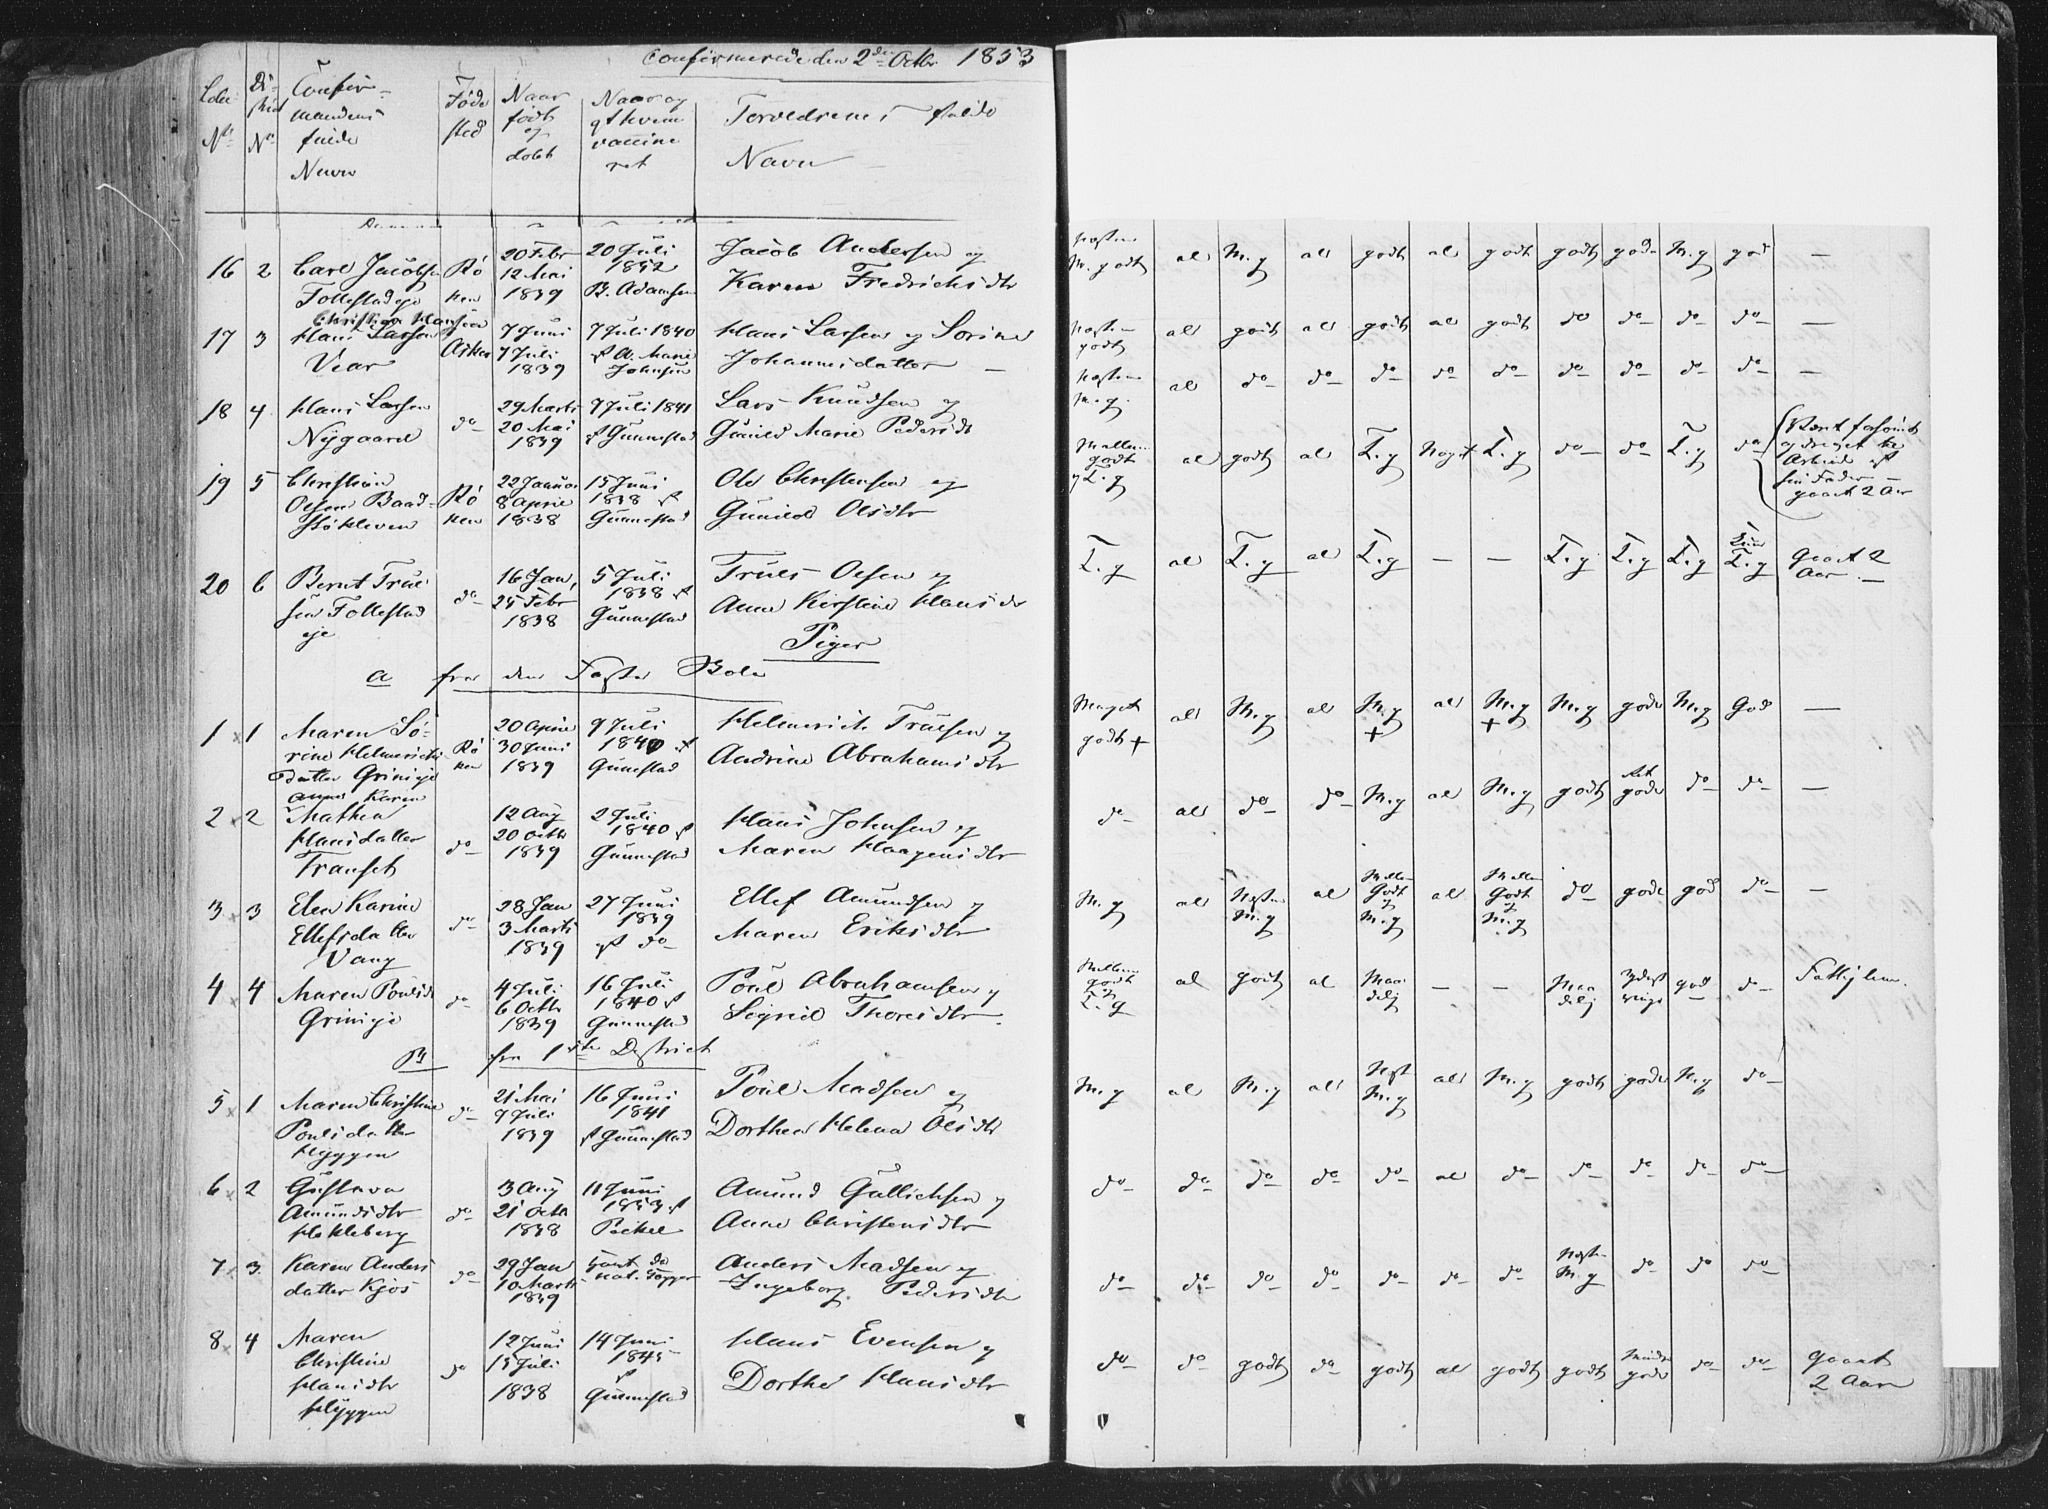 Confirmerede den 2den Octbr 1853
Lobe No
Di-strict No
Confir-mandens fulde Navn
Føde sted
Naar født og døbt
Naar og af hvem vaccineret
Forældrenes fulde Navn
16 2 Carl Jacobsen Røken 20 Febr 20 Juli Jacob Andersen og
Follestadeje 12 Mai 1839 1842 B. Adamsen Karen Fredrichsdtr
Næsten M. godt al M.g al godt al godt godt gode M.g god —
17 3 Christian Hansen
Hans Larsen Asker 7 Juni 7 Juli 1840 Hans Larsen og Sorine
Vear 7 Juli 1839 af A. Marie Johnsen Johannesdatter —
Næsten godt al godt al godt al godt do do do do —
18 4 Hans Larsen do 29 Marts 7 Juli 1841 Lars Knudsen og
Nygaard 20 Mai 1839 af Gunnestad Gunild Marie Pedersdt
Næsten M.g. al do do do do do do do do do —
19 5 Christian Røken 22 Januar 15 Juni Ole Christensen og
Olsen Baadstøkleven 8 April 1838 1838 af Gunnestad Gunild Olsdtr
Mellem godt og T.g al godt al T.g Noget T.g do do T.g do Været forsømt og dreget til Arbeide af sin Fader — gaaet 2 Aar
20 6 Bernt Trulsen Follestad eje do 16 Jan, 5 Juli Truls Olsen og
25 Febr 1838 1838 af Gunnestad Anne Kirstine Hansdr
T.g al T.g al T.g — — T.g T.g T.g T.g Gaaet 2 Aar. —
Piger
a fra den Faste Skole
1 1 Maren Sørine Helmerichsdatter Grinieje Røken 20 April 30 Juni 1839 9 Juli 1840 af Gunnestad Helmerich Trulsen og
Andrine Abrahamsdtr
Meget godt + al M.g al M.g + al M.g + M.g gode M.g God —
2 2 Anne Karen
Mathea Hansdatter Transet do 12 Aug 20 Octbr 1839 2 Juli 1840 af Gunnestad Hans Johnsen og
Maren Haagensdtr
do al do do M.g al M.g godt Ret gode do do —
3 3 Elen Karine Ellefsdatter Vang do 28 Jan 3 Marts 1839 27 Juni 1839 af do Ellef Amundsen og
Maren Eriksdtr
M.g al Næsten M.g al Mellem Godt og M.g al Mellem Godt og M.g do gode god do —
4 4 Maren Poulsdt Grinieje do 4 Juli 6 Octbr 1839 16 Juli 1840 af Gunnestad Poul Abrahamsen og
Sigrid Thoresdtr.
Mellem godt og T.g al godt al Maadelig — — Maadelig god do Fattiglem.
B fra 1ste District
5 1 Maren Christine Poulsdatter Hyggen do 21 Mai 9 Juli 1839 16 Juni 1841 af Gunnestad Poul Madsen og
Dorthea Helena Olsdtr
M.g al M.g al Næst M.g al M.g godt gode M.g do
6 2 Gustava Amundsdtr Hokleberg do 3 Aug 21 Octb 1838 11 Juni 1853 af Peckel Amund Gullichsen og
Anne Christensdtr
do do do do do al do do do do do
7 3 Karen Andersdatter Kjos do 29 Jan 10 Marts 1839 havt de nat. Kopper Anders Madsen og
Ingeborg Pedersdtr
do do do do do do do Næsten M.g do do do
8 4 Maren Christine Hansdtr Hyggen do 12 Juni 15 Juli 1838 14 Juni 1845 af Gunnestad Hans Evensen og
Dorthe Hansdtr
do do godt do godt al godt godt Mindre gode do do gaaet 2 Aar